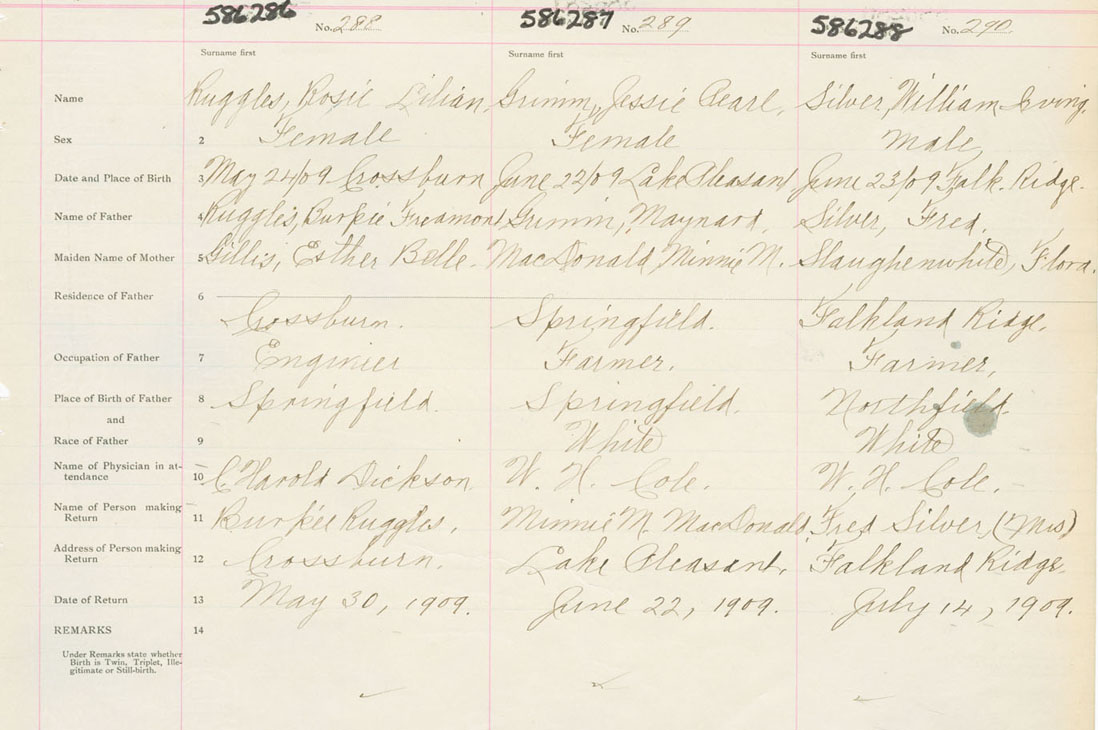 586286 No. 288 586287 No. 289 586288 No. 290
Surname first Surname first Surname first
Name Ruggles, Rosie Lilian, Grimm, Jessie Pearl, Silver, William Irving.
Sex 2 Female Female Male
Date and Place of Birth 3 May 24/09 Crossburn June 22/09 Lake Pleasant June 23/09 Falk. Ridge.
Name of Father 4 Ruggles, Burpie Freamont Grimm, Maynard. Silver, Fred.
Maiden Name of Mother 5 Gillis, Esther Belle. MacDonald, Minnie M. Slaughenwhite, Flora.
Residence of Father 6 Crossburn. Springfield. Falkland Ridge.
Occupation of Father 7 Engineer Farmer. Farmer,
Place of Birth of Father 8 Springfield. Springfield. Northfield.
and
Race of Father 9 White White
Name of Physician in at-
tendance 10 C Harold Dickson W. H. Cole. W. H. Cole.
Name of Person making
Return 11 Burpee Ruggles, Minnie M. MacDonald, Fred Silver, (Mrs)
Address of Person making
Return 12 Crossburn. Lake Pleasant, Falkland Ridge.
Date of Return 13 May 30, 1909. June 22, 1909. July 14, 1909.
REMARKS 14
Under Remarks state whether
Birth is Twin, Triplet, Ille-
gitimate or Still-birth.